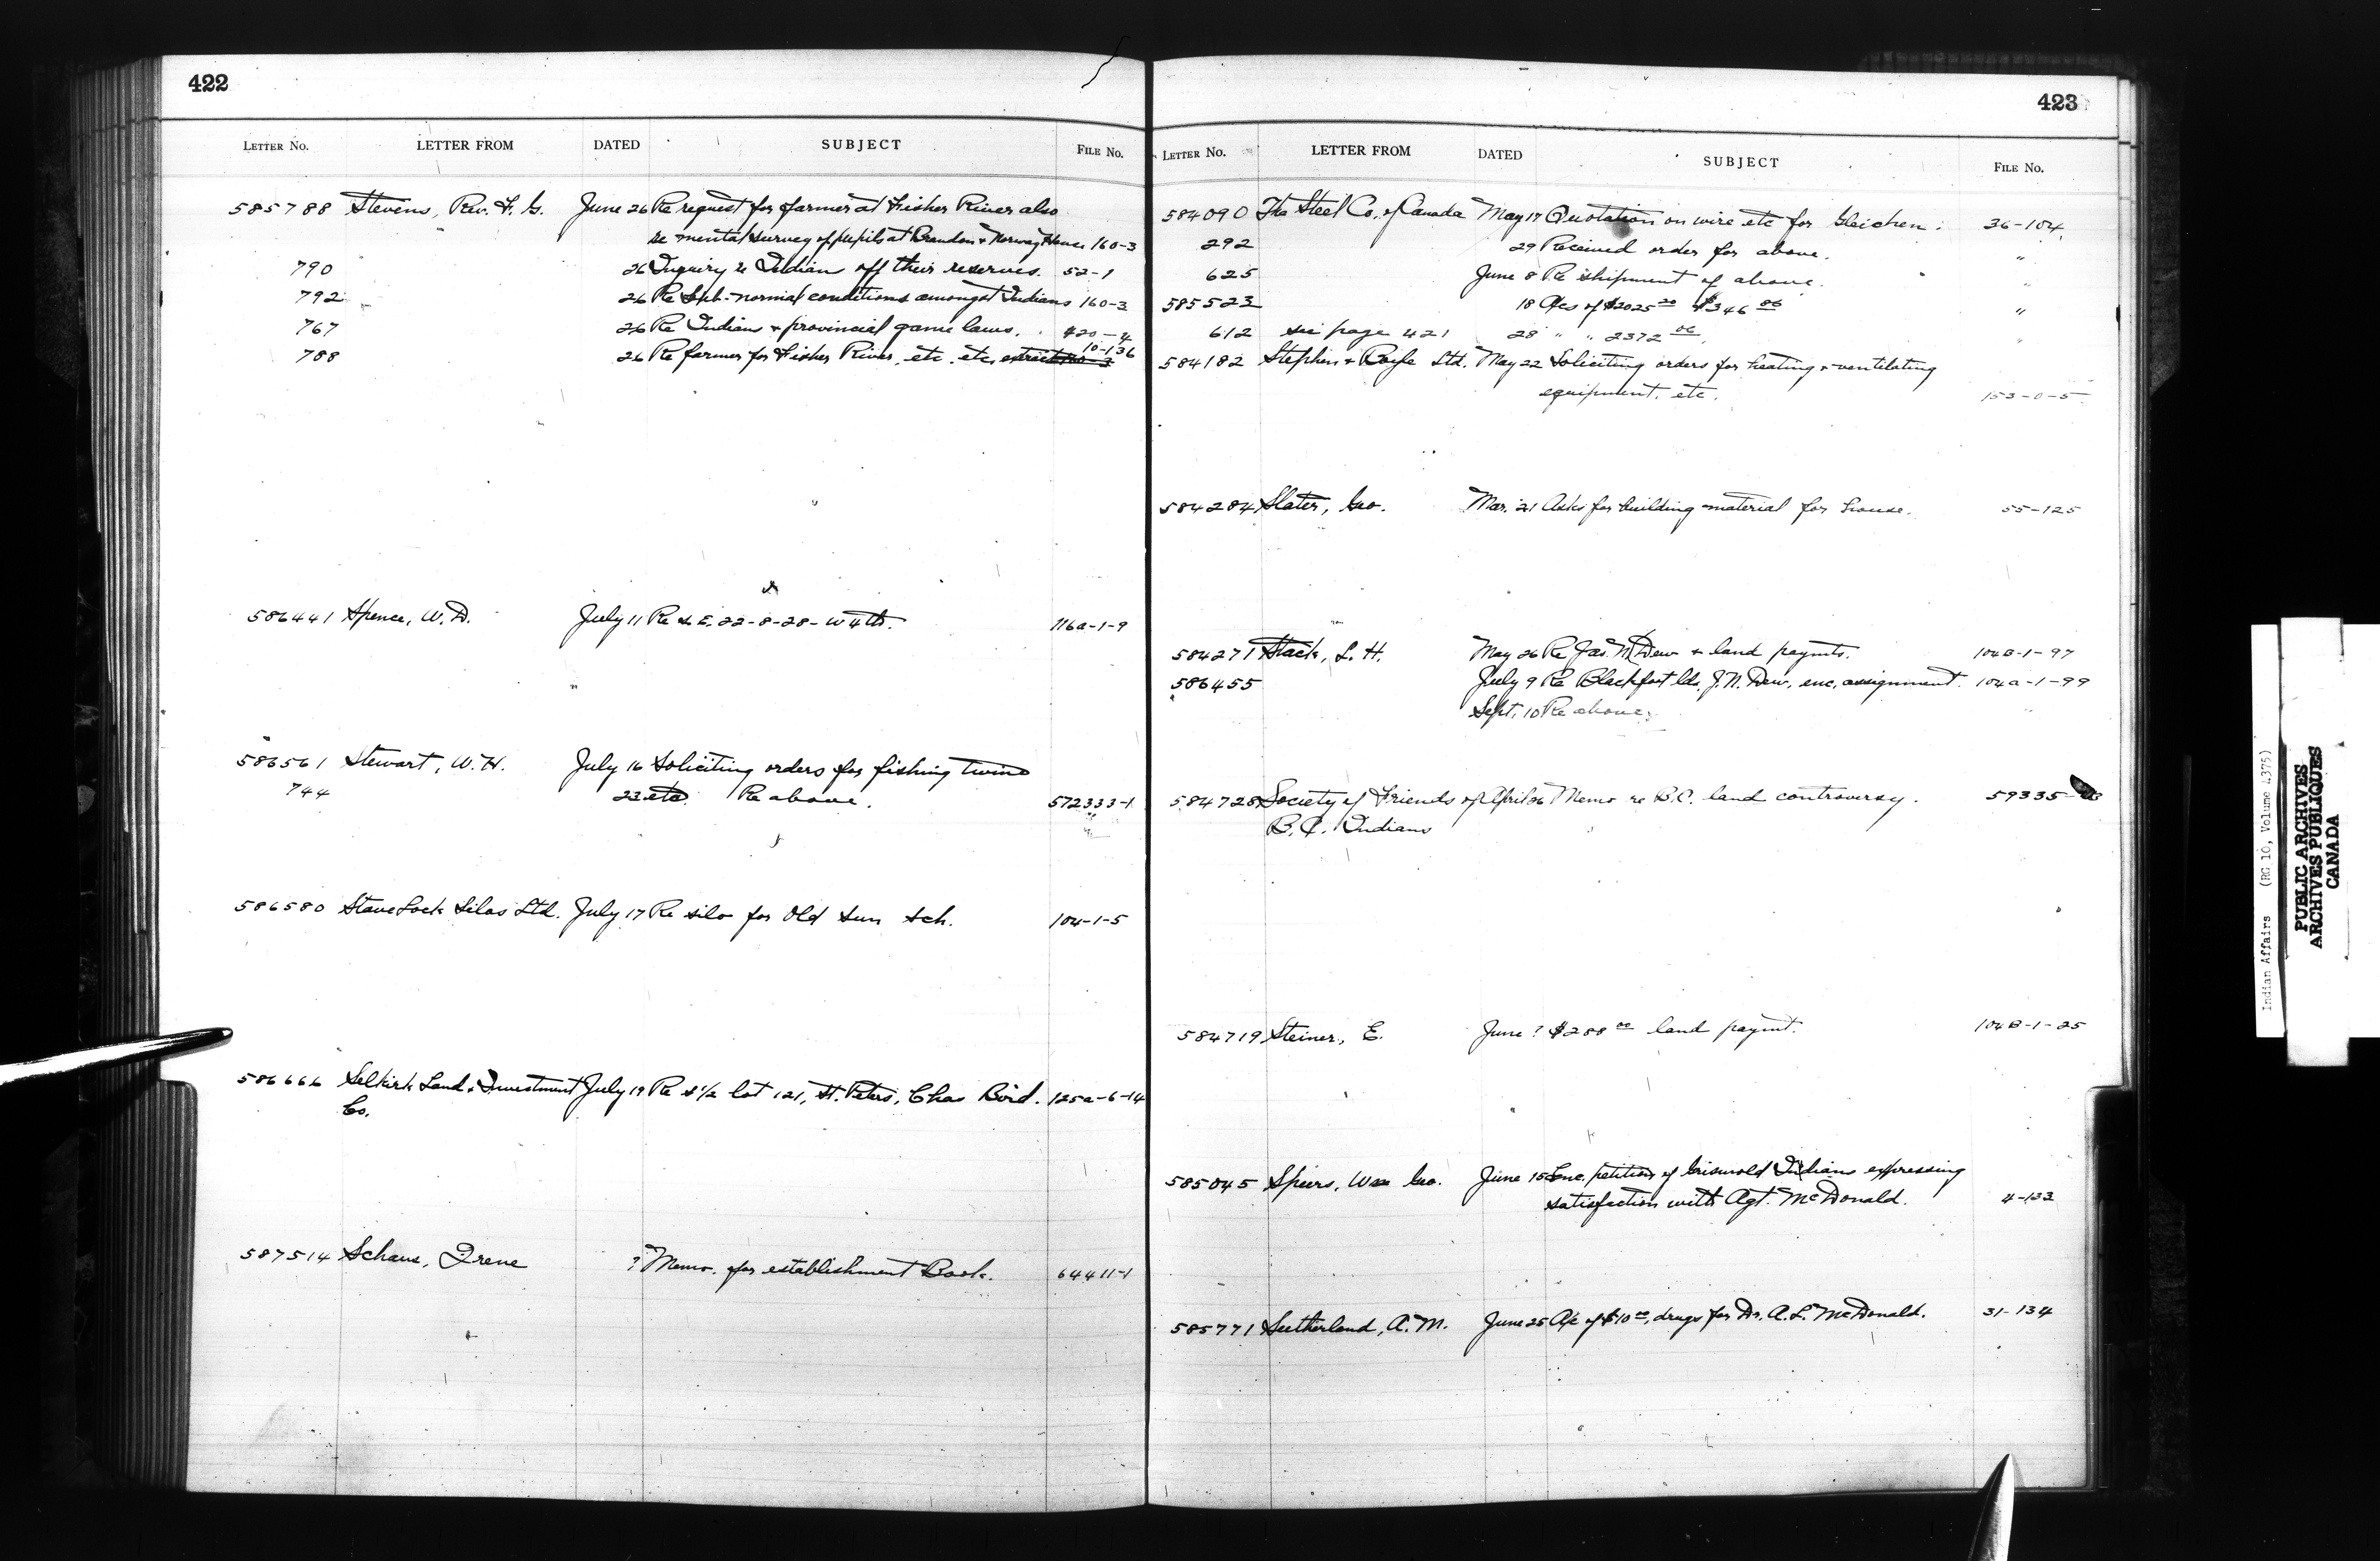 422
LETTER No. LETTER FROM DATED SUBJECT FILE No.
585788 Stevens, Rev. F. G. June 26 Re request for farmer at Fisher River also
re mental survey of pupils at Brandon & Norway House 160-3
790 26 Inquiry re Indian off their reserves. 52-1
792 26 Re Sub-normal conditions amongst Indians 160-3
767 26 Re Indians & provincial game laws. 420-4
788 26 Re farmer for Fisher River, etc. etc. extract 10-136
586441 Spence, W. D. July 11 Re S.E. 22-8-28-W4th. 116a-1-9
586561 Stewart, W. H. July 16 Soliciting orders for fishing twine
744 23 etc. Re above. 572333-1
586580 Stave Lock Silos Ltd. July 17 Re silo for Old Sun Sch. 104-1-5
586666 Selkirk Land & Investment July 19 Re S 1/2 lot 121, St. Peters, Chas Bird. 125a-6-14
Co.
587514 Schaus, Irene ? Memo. for establishment Book. 64411-1
423
LETTER No. LETTER FROM DATED SUBJECT FILE No.
584090 The Steel Co. of Canada May 17 Quotation on wire etc for Gleichen. 36-104
292 29 Received order for above. "
625 June 8 Re shipment of above. "
585523 18 A/cs of $2025.20 $346.86 "
612 see page 421 28 " " 2372.06 "
584182 Stephen & Boyle Ltd. May 22 Soliciting orders for heating & ventilating
equipment, etc. 153-0-5
584284 Slater, Geo. Mar. 21 Asks for building material for house. 55-125
584271 Stack, L. H. May 26 Re Jas. N. Dew & land paymts. 104B-1-97
586455 July 9 Re Blackfoot lds, J. N. Dew, enc. assignment. 104a-1-99
Sept. 10 Re above. "
584728 Society of Friends of April 26 Memo re B.C. land controversy. 59335-
B.C. Indians
584719 Steiner, E. June ? $288.00 land paymt. 104B-1-25
585045 Spiers, Wm Geo. June 15 Enc. petition of Griswold Indians expressing
satisfaction with Agt. McDonald. 4-133
585771 Sutherland, A. M. June 25 A/c of $10.00, drugs for Dr. A. L. McDonald. 31-134
Indian Affairs (RG 10, Volume 4375)
PUBLIC ARCHIVES
ARCHIVES PUBLIQUES
CANADA